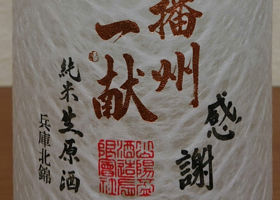 感謝
播州
一献
純米生原酒
兵庫北錦
山陽盃
酒造有
限會社